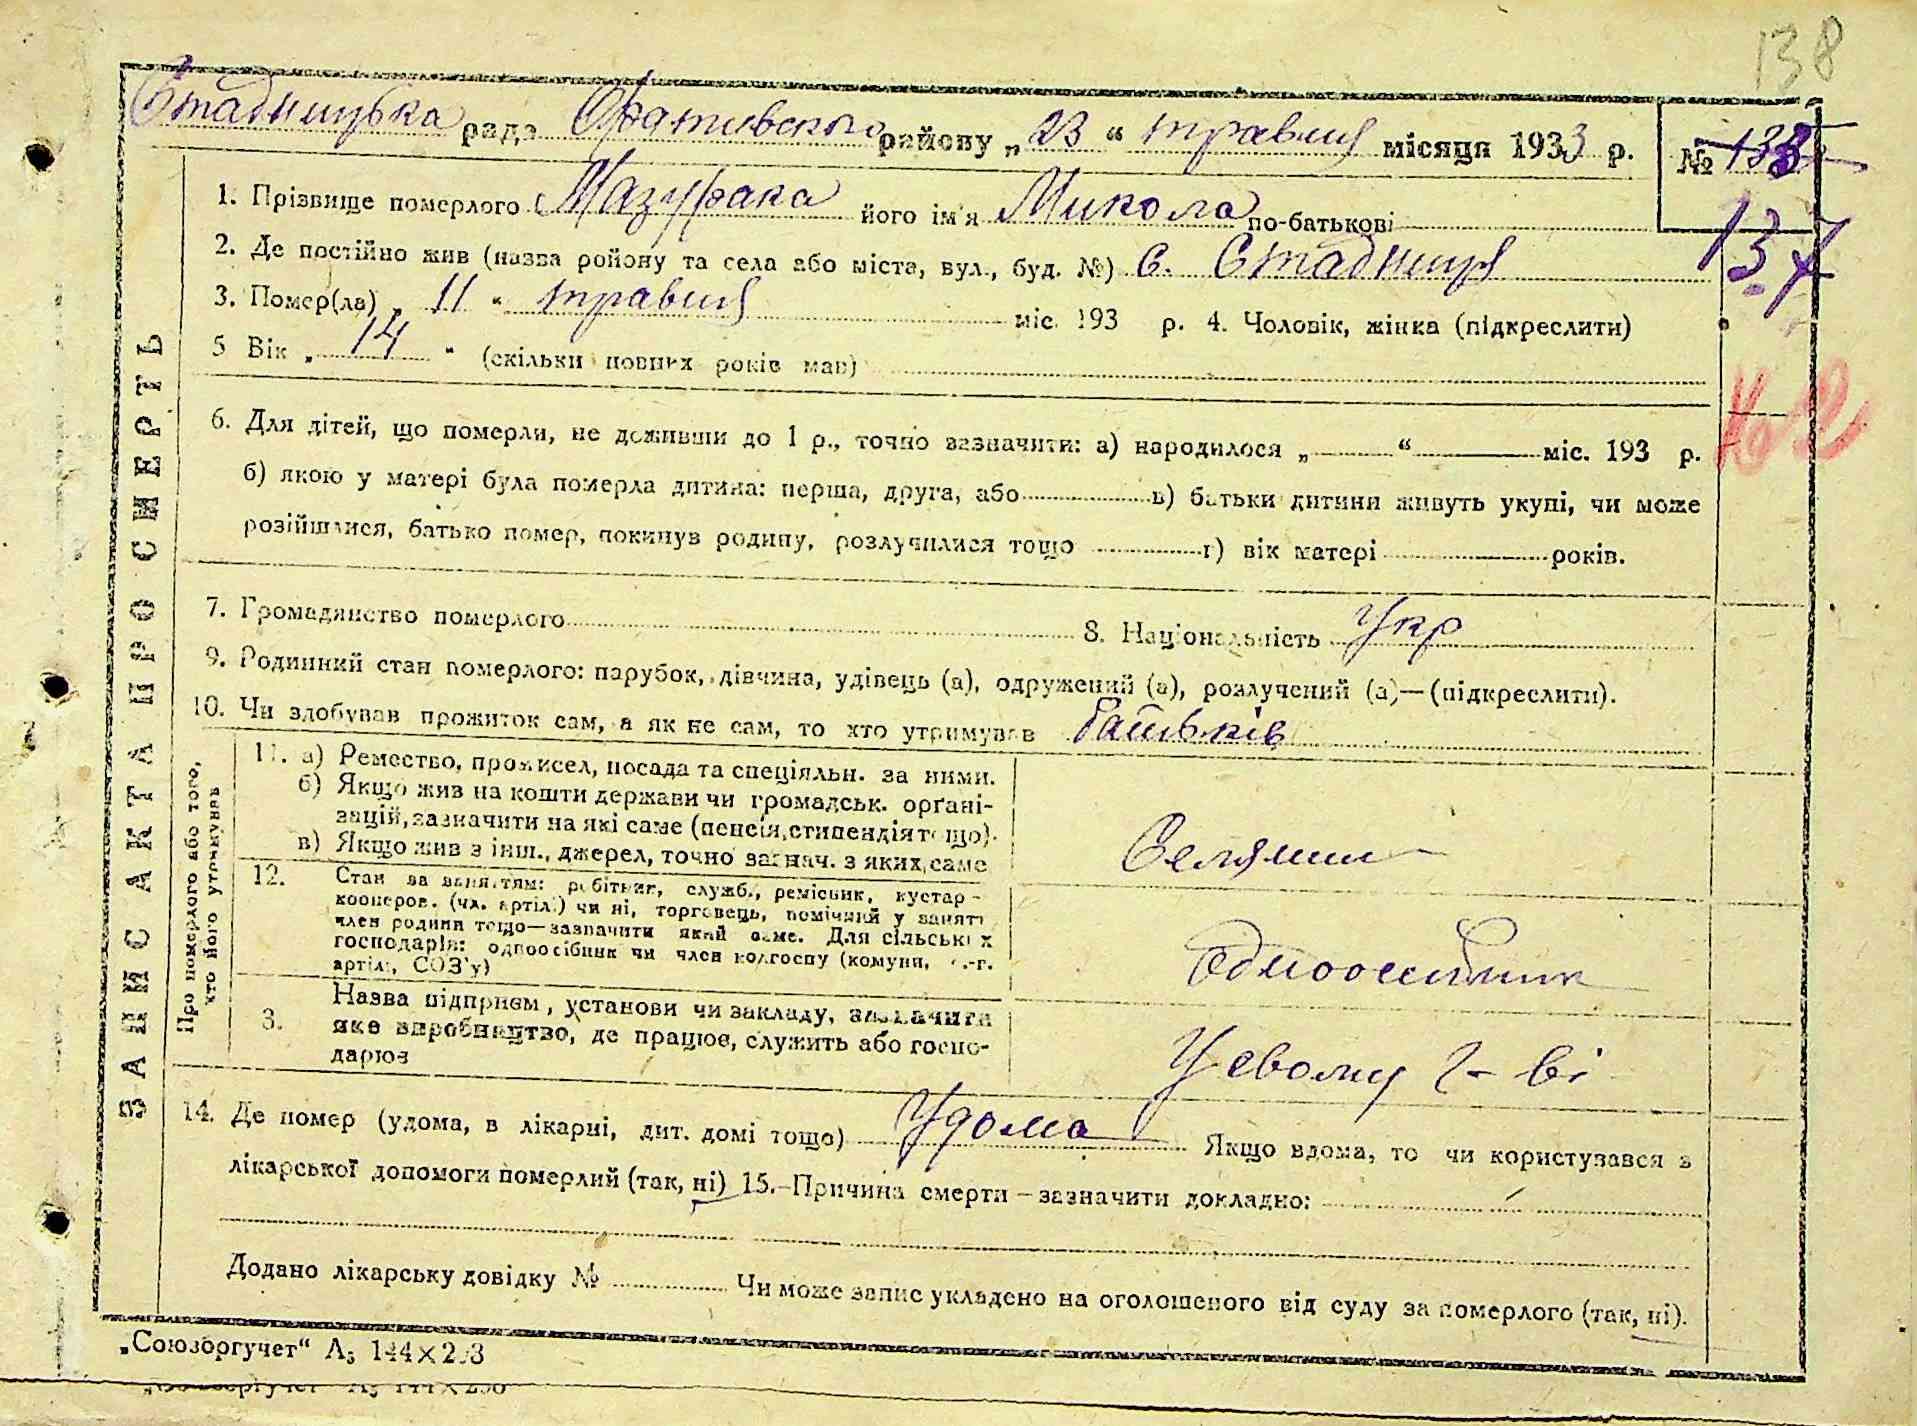 138
Стадницька рада Оратівського району „23“ травня місяця 1933 р.
№ 138
137
1. Прізвище померлого Мазурака його ім'я Микола по-батькові
2. Де постійно жив (назва ройону та села або міста, вул., буд. №) С. Стадниця
3. Помер(ла) „11“ травня міс. 193 р. 4. Чоловік, жінка (підкреслити)
5 Вік „14“ (скільки повних років мав)
6. Для дітей, що померли, не доживши до 1 р., точно зазначити: а) народилося „ “ міс. 193 р.
б) якою у матері була померла дитина: перша, друга, або в) батьки дитини живуть укупі, чи може
розійшлися, батько помер, покинув родину, розлучилися тощо г) вік матері років.
7. Громадянство померлого 8. Національність Укр
9. Родинний стан померлого: парубок, дівчина, удівець (а), одружений (а), розлучений (а)—(підкреслити).
10. Чи здобував прожиток сам, а як не сам, то хто утримував батьків
ЗАПИС АКТА ПРО СМЕРТЬ
Про померлого або того,
хто його утримував
11. а) Ремество, промисел, посада та спеціяльн. за ними.
б) Якщо жив на кошти держави чи громадськ. органі-
зацій, зазначити на які саме (пенсія, стипендія тощо).
в) Якщо жив з інш., джерел, точно зазнач. з яких, саме
Селянин
12. Стан за заняттям: робітник, служб., ремісник, кустар-
кооперов. (чл. артіл.) чи ні, торговець, помічний у занятт
член родини тощо—зазначити який саме. Для сільських
господарів: одноосібник чи член колгоспу (комуни, с.-г.
артілі, СОЗ'у)
Одноосібник
3. Назва підприєм, установи чи закладу, зазначити
яке виробництво, де працює, служить або госпо-
дарює
У своому г-ві
14. Де помер (удома, в лікарні, дит. домі тощо) Удома Якщо вдома, то чи користувався з
лікарської допомоги померлий (так, ні) 15.—Причина смерти—зазначити докладно:
Додано лікарську довідку № Чи може запис укладено на оголошеного від суду за померлого (так, ні).
„Союзоргучет“ А5 144×203